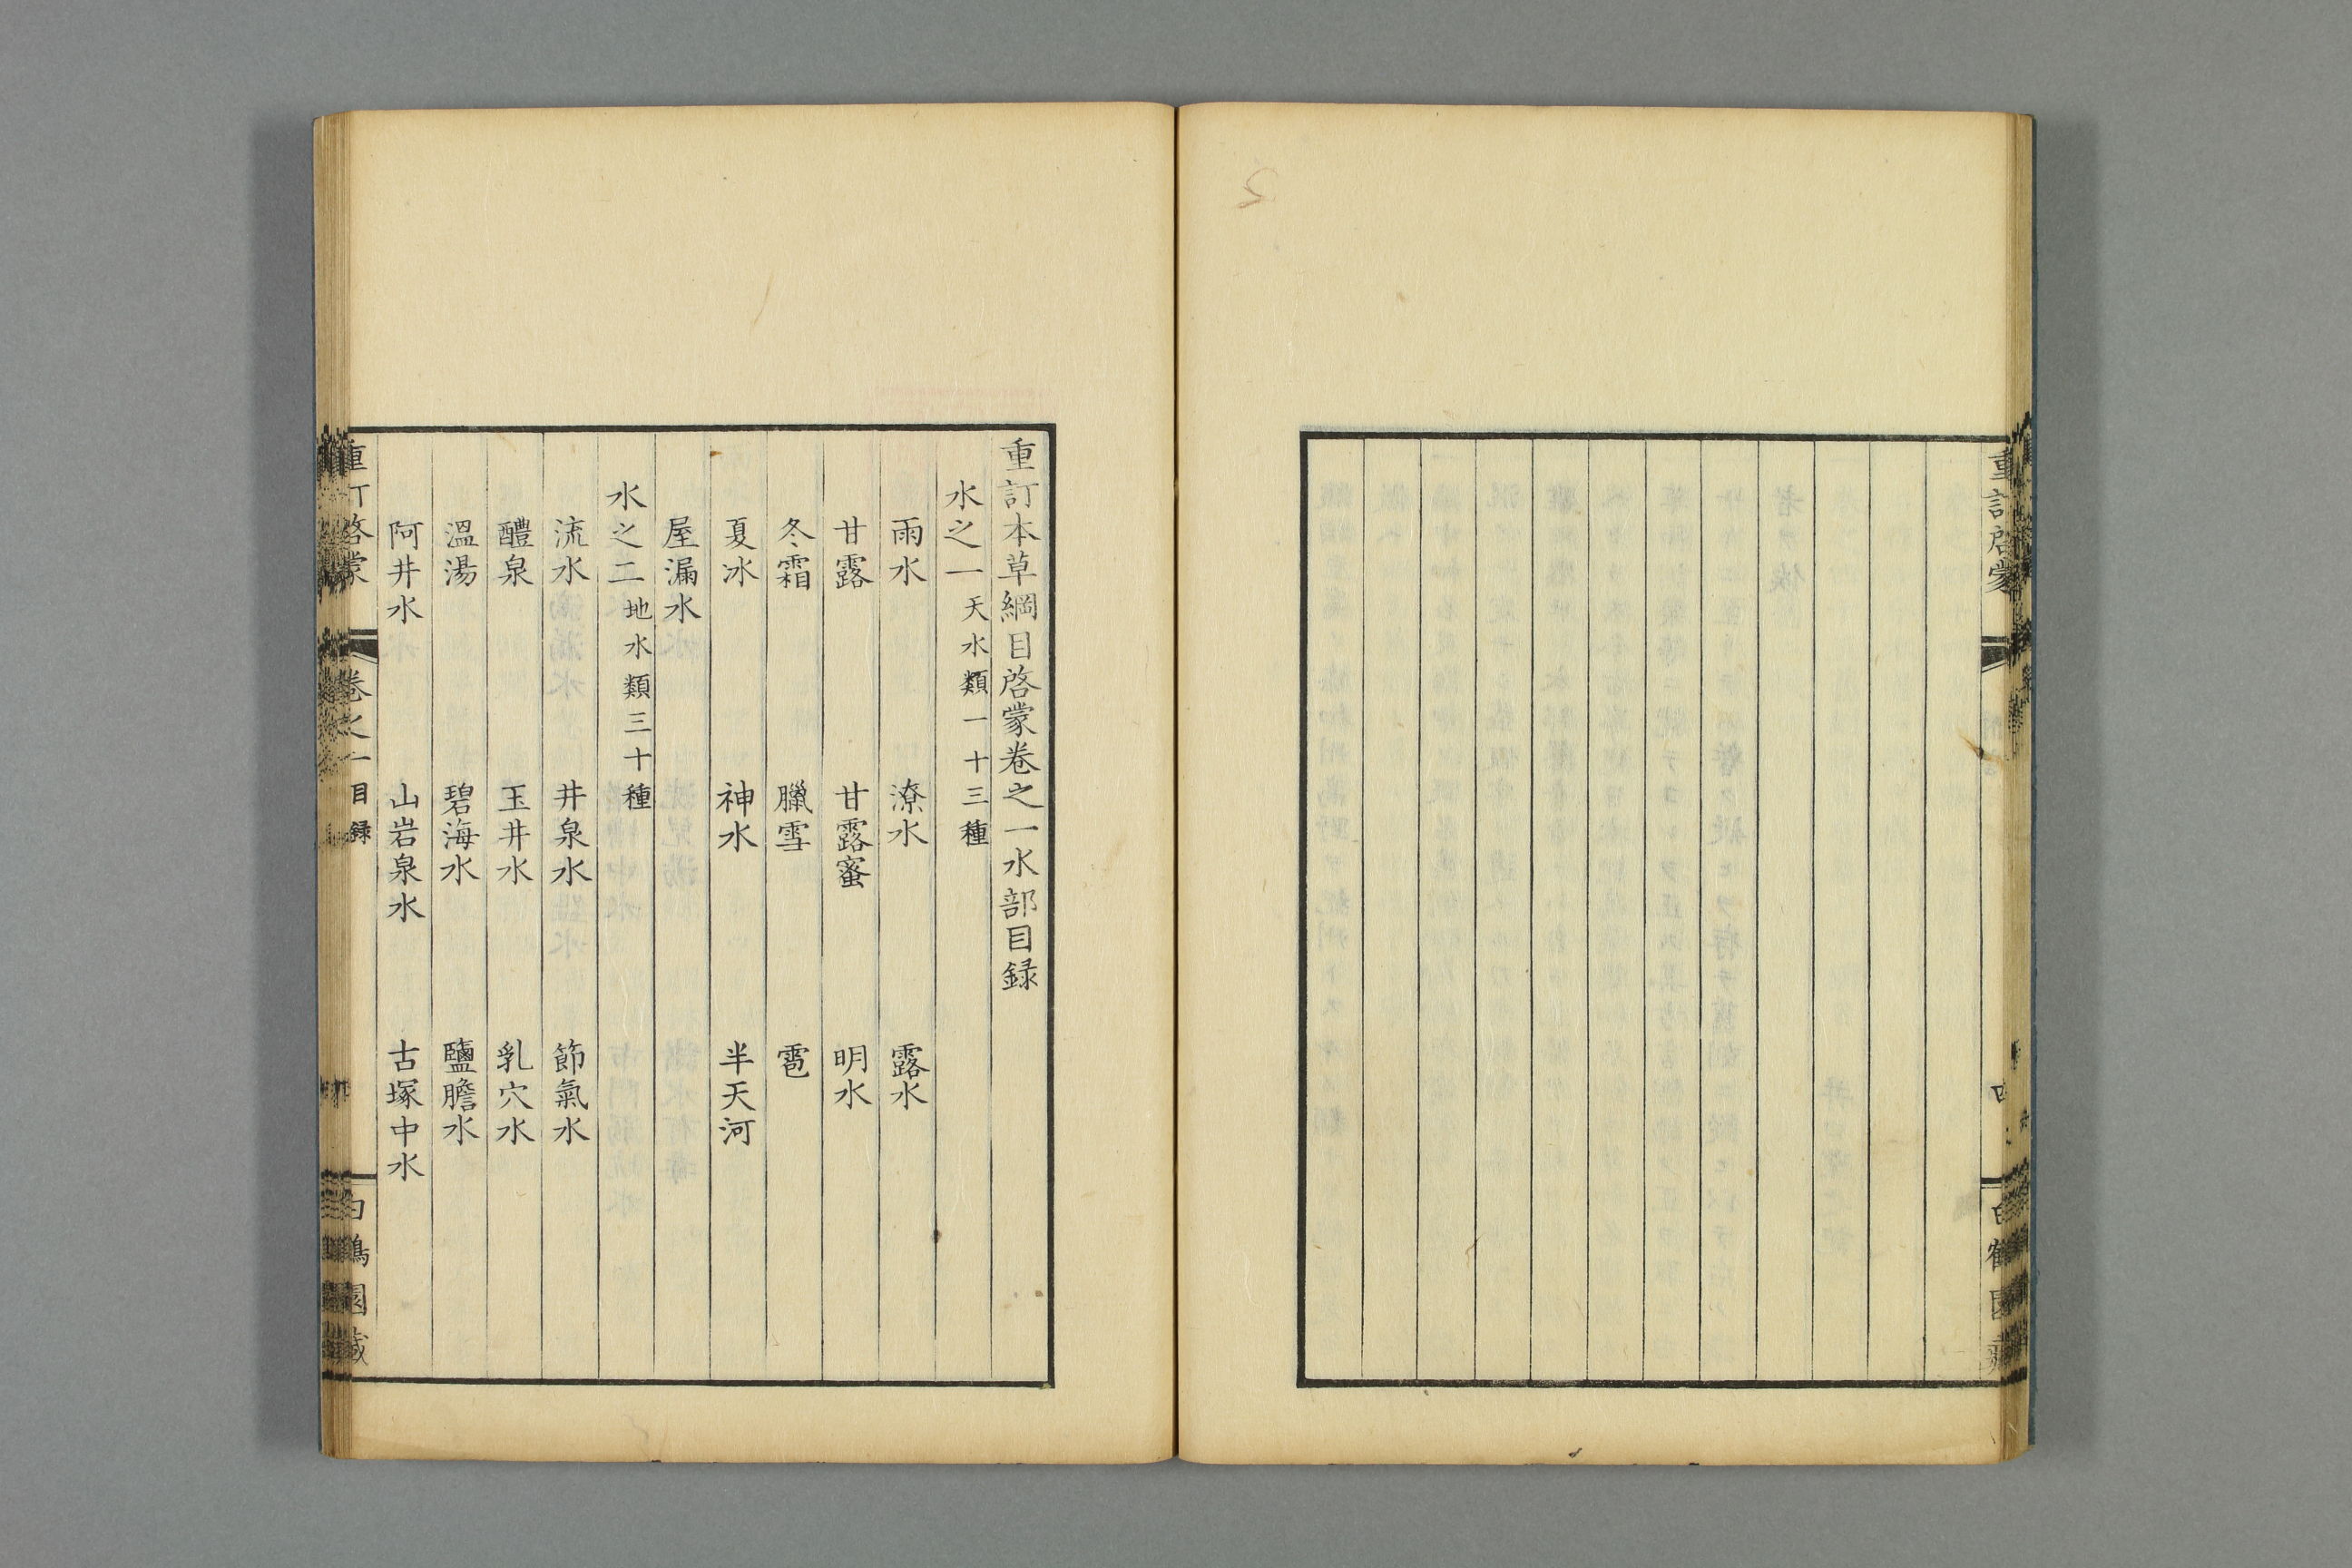 重訂啓蒙
四
白鶴園藏
重訂本草綱目啓蒙卷之一水部目録
水之一 天水類一十三種
雨水 潦水 露水
甘露 甘露蜜 明水
冬霜 臘雪 雹
夏冰 神水 半天河
屋漏水
水之二 地水類三十種
流水 井泉水 節氣水
醴泉 玉井水 乳穴水
溫湯 碧海水 鹽膽水
阿井水 山岩泉水 古塚中水
重訂啓蒙 卷之一 目録
白鶴園藏